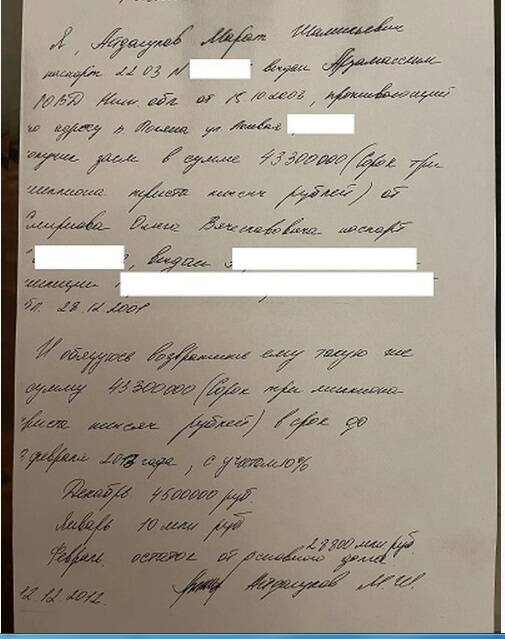 Я, Айдагулов Марат Шамильевич
паспорт 22 03 N выдан Арзамасским
РОВД Ниж. обл от 15.10.2003, проживающий
по адресу п. Поляна ул. Новая
получил заем в сумме 43300000 (Сорок три
миллиона триста тысяч рублей) от
Смирнова Олега Вячеславовича паспорт
выдан
28.12.2001
И обязуюсь возвратить ему такую же
сумму 43300000 (Сорок три миллиона
триста тысяч рублей) в срок до
февраля 2013 года, с учетом 10%.
Декабрь 4500000 руб
Январь 10 млн руб
28800 млн. руб
Февраль. остаток от основного долга
12.12.2012. Айдагулов М.Ш.